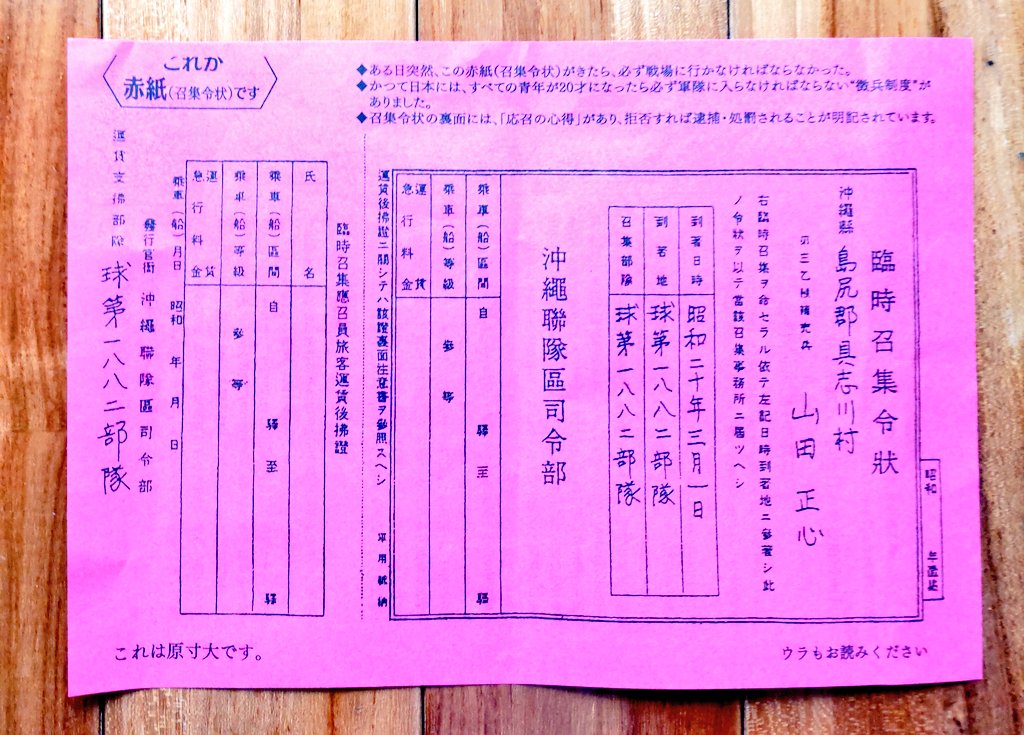 これが
赤紙(召集令状)です
◆ある日突然、この赤紙(召集令状)がきたら、必ず戦場に行かなければならなかった。
◆かつて日本には、すべての青年が20才になったら必ず軍隊に入らなければならない"徴兵制度"が
ありました。
◆召集令状の裏面には、「応召の心得」があり、拒否すれば逮捕・処罰されることが明記されています。
昭和 年度
臨時召集令狀
沖繩縣島尻郡具志川村
第三乙種補充兵 山田 正心
右臨時召集ヲ命セラル依テ左記日時到著地ニ參著シ此
ノ令狀ヲ以テ當該召集事務所ニ届ツヘシ
到著日時 昭和二十年三月一日
到著地 球第一八八二部隊
召集部隊 球第一八八二部隊
沖繩聯隊區司令部
乘車(船)區間 自 驛至 驛
乘車(船)等級 參等
急行料金 運賃
運賃後拂證ニ關シテハ該證裏面注意書ヲ參照スヘシ
臨時召集應召員旅客運賃後拂證
氏名
乘車(船)區間 自 驛至 驛
乘車(船)等級 參等
急行料金 運賃
乘車(船)月日 昭和 年 月 日
發行官衙 沖繩聯隊區司令部
運賃支拂部隊 球第一八八二部隊
これは原寸大です。
ウラもお読みください